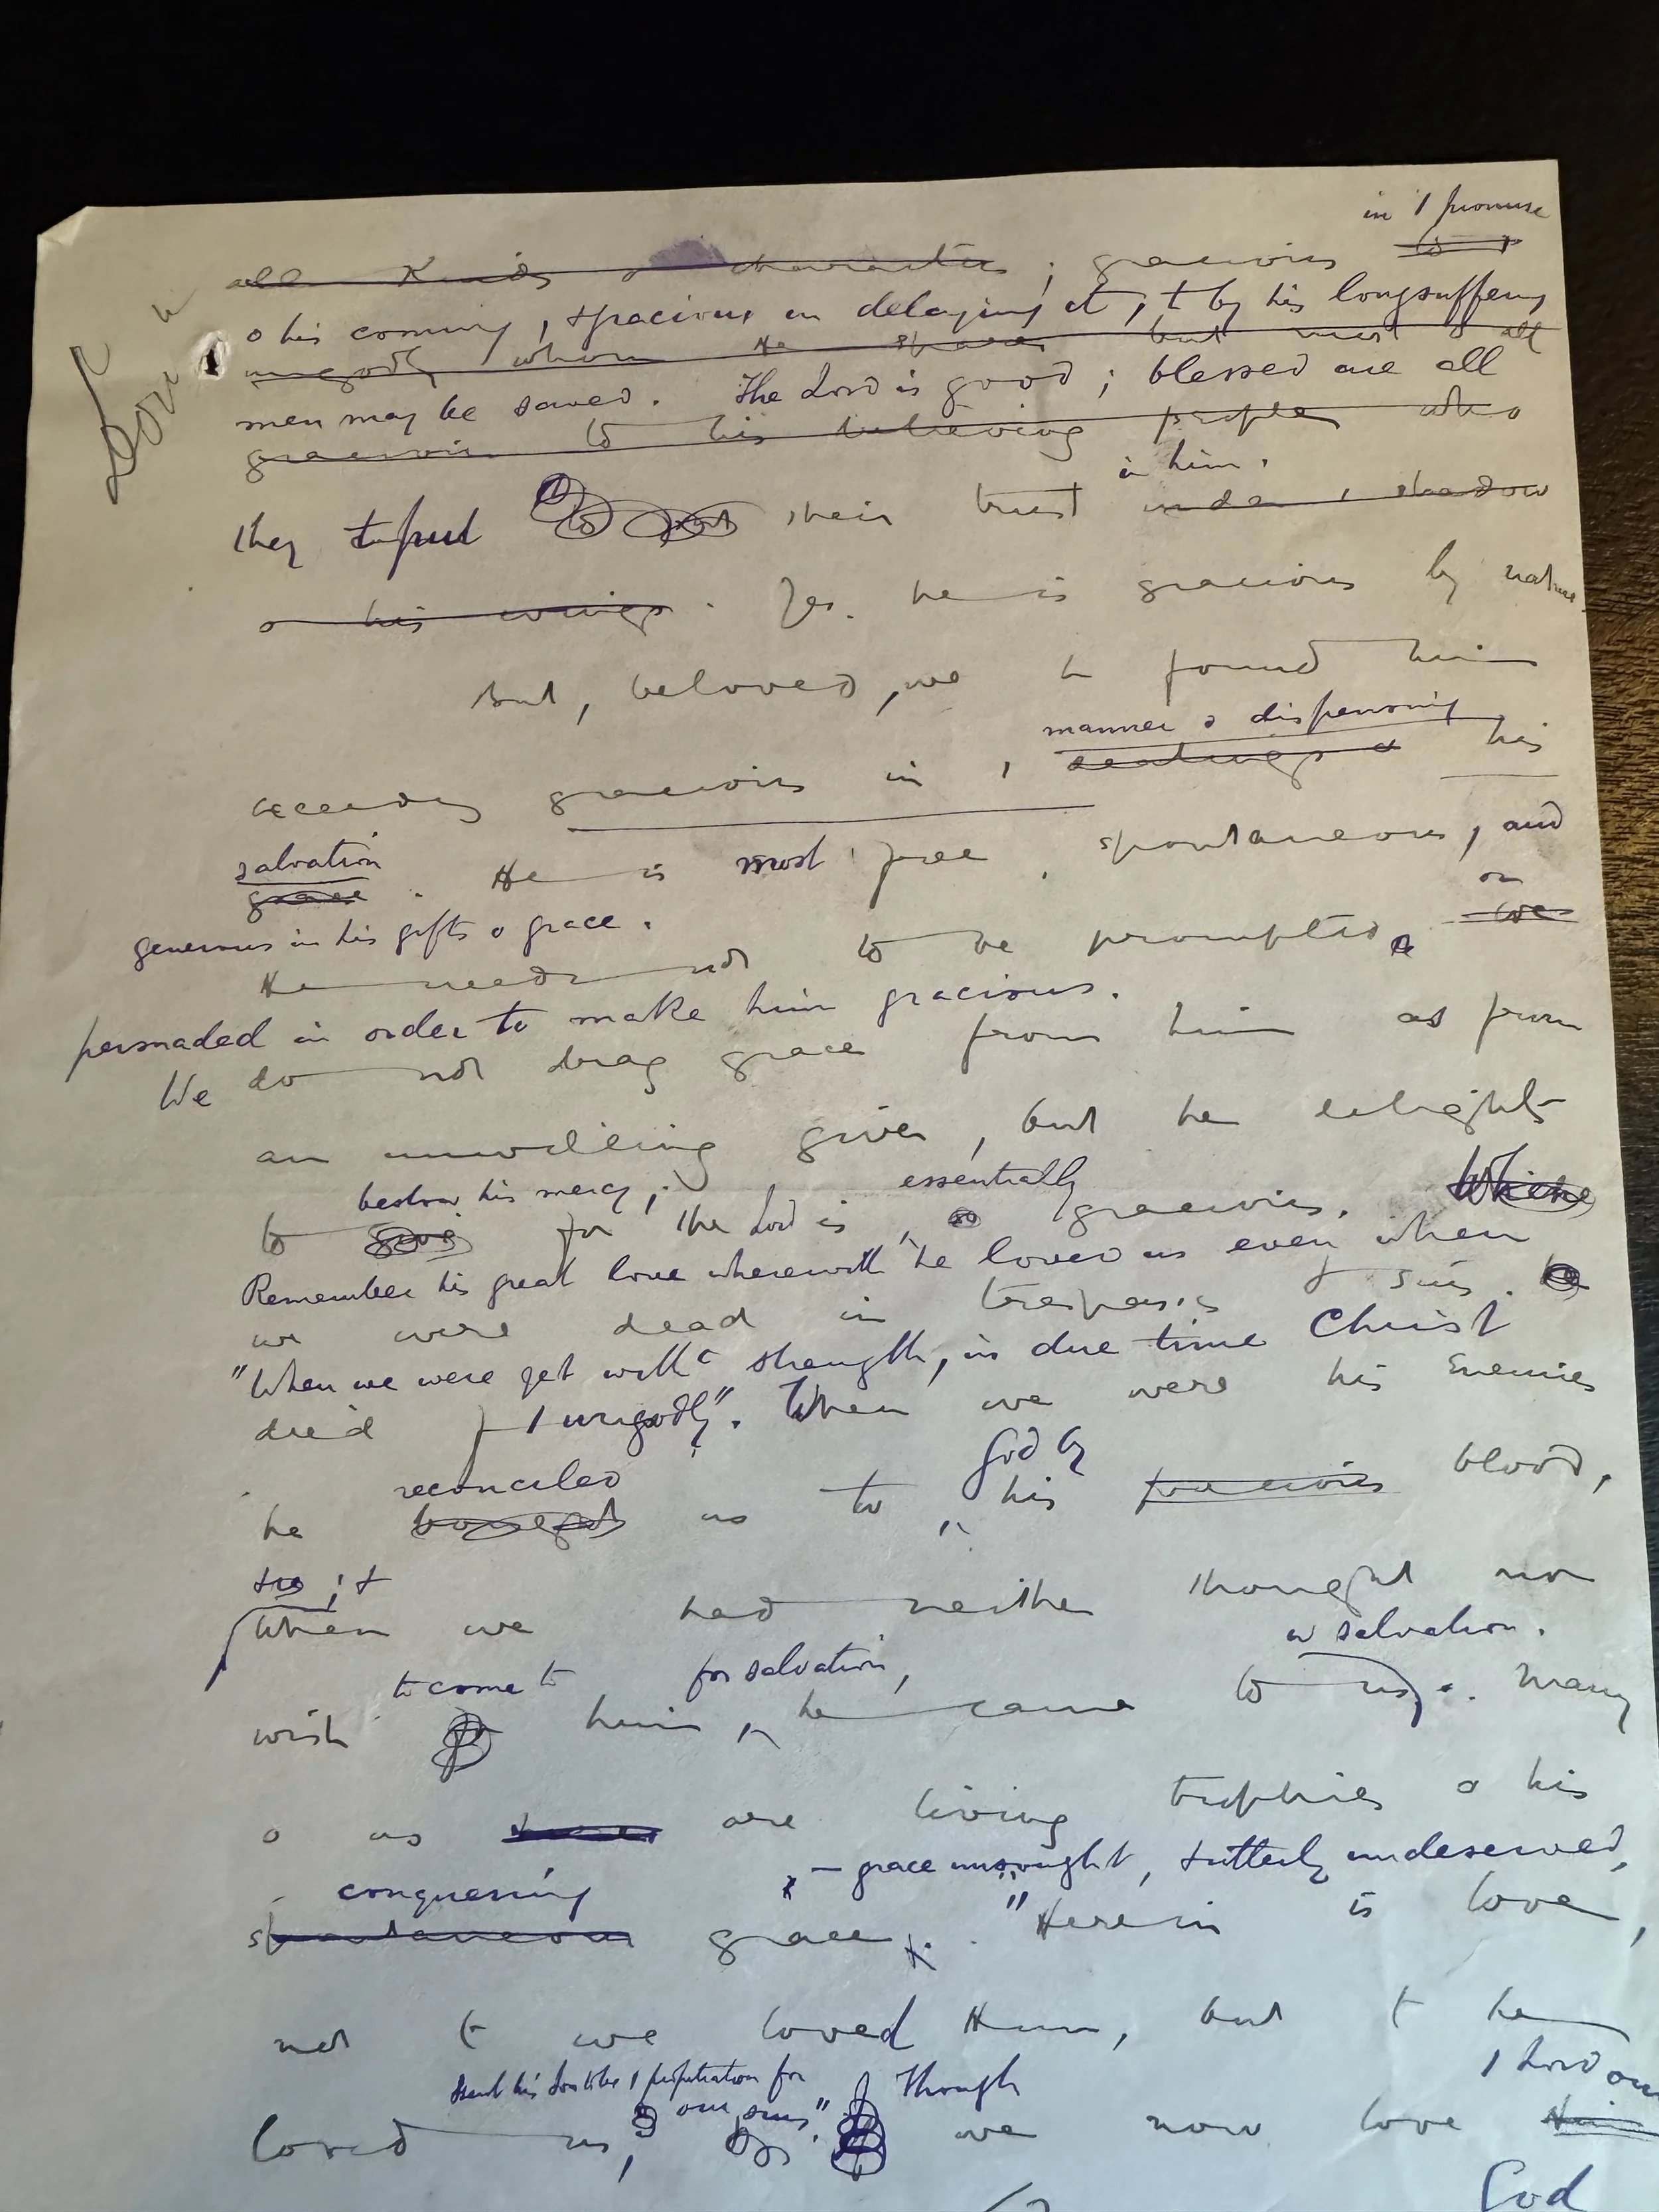 in / promise
all kinds o characters ; gracious to /
o his coming, & gracious in delaying it, t by his longsuffering
ungodly whom He spares but most to all
men may be saved. The Lord is good ; blessed are all
gracious to his believing people who
in him.
they t put to put their trust under / shadow
o his wings. Yes. he is gracious by nature.
But, beloved, we h found him
manner o dispensing
exceeding gracious in / dealings o his
salvation
grace. He is most free, spontaneous, and
generous in his gifts o grace.
or
He needs not to be prompted, we
persuaded in order to make him gracious.
We do not drag grace from him as from
an unwilling giver, but he delights
bestow his mercy ; essentially
to give for the Lord is so gracious. Where
Remember his great love wherewith he loved us even when
we were dead in trespasses & sins. he
"When we were yet witht strength, in due time Christ
died f / ungodly". When we were his enemies
reconciled God by
he bought us to his precious blood,
& ; &
When we had neither thought nor
w salvation.
to come to for salvation,
wish for him, he came to us. Many
o us are living trophies o his
conquering - grace unsought, & utterly undeserved,
spontaneous grace. "Herein is love,
not t we loved Him, but t he
sent his Son to be / propitiation for Though / Lord our
our sins"
loved us, we now love Him
God